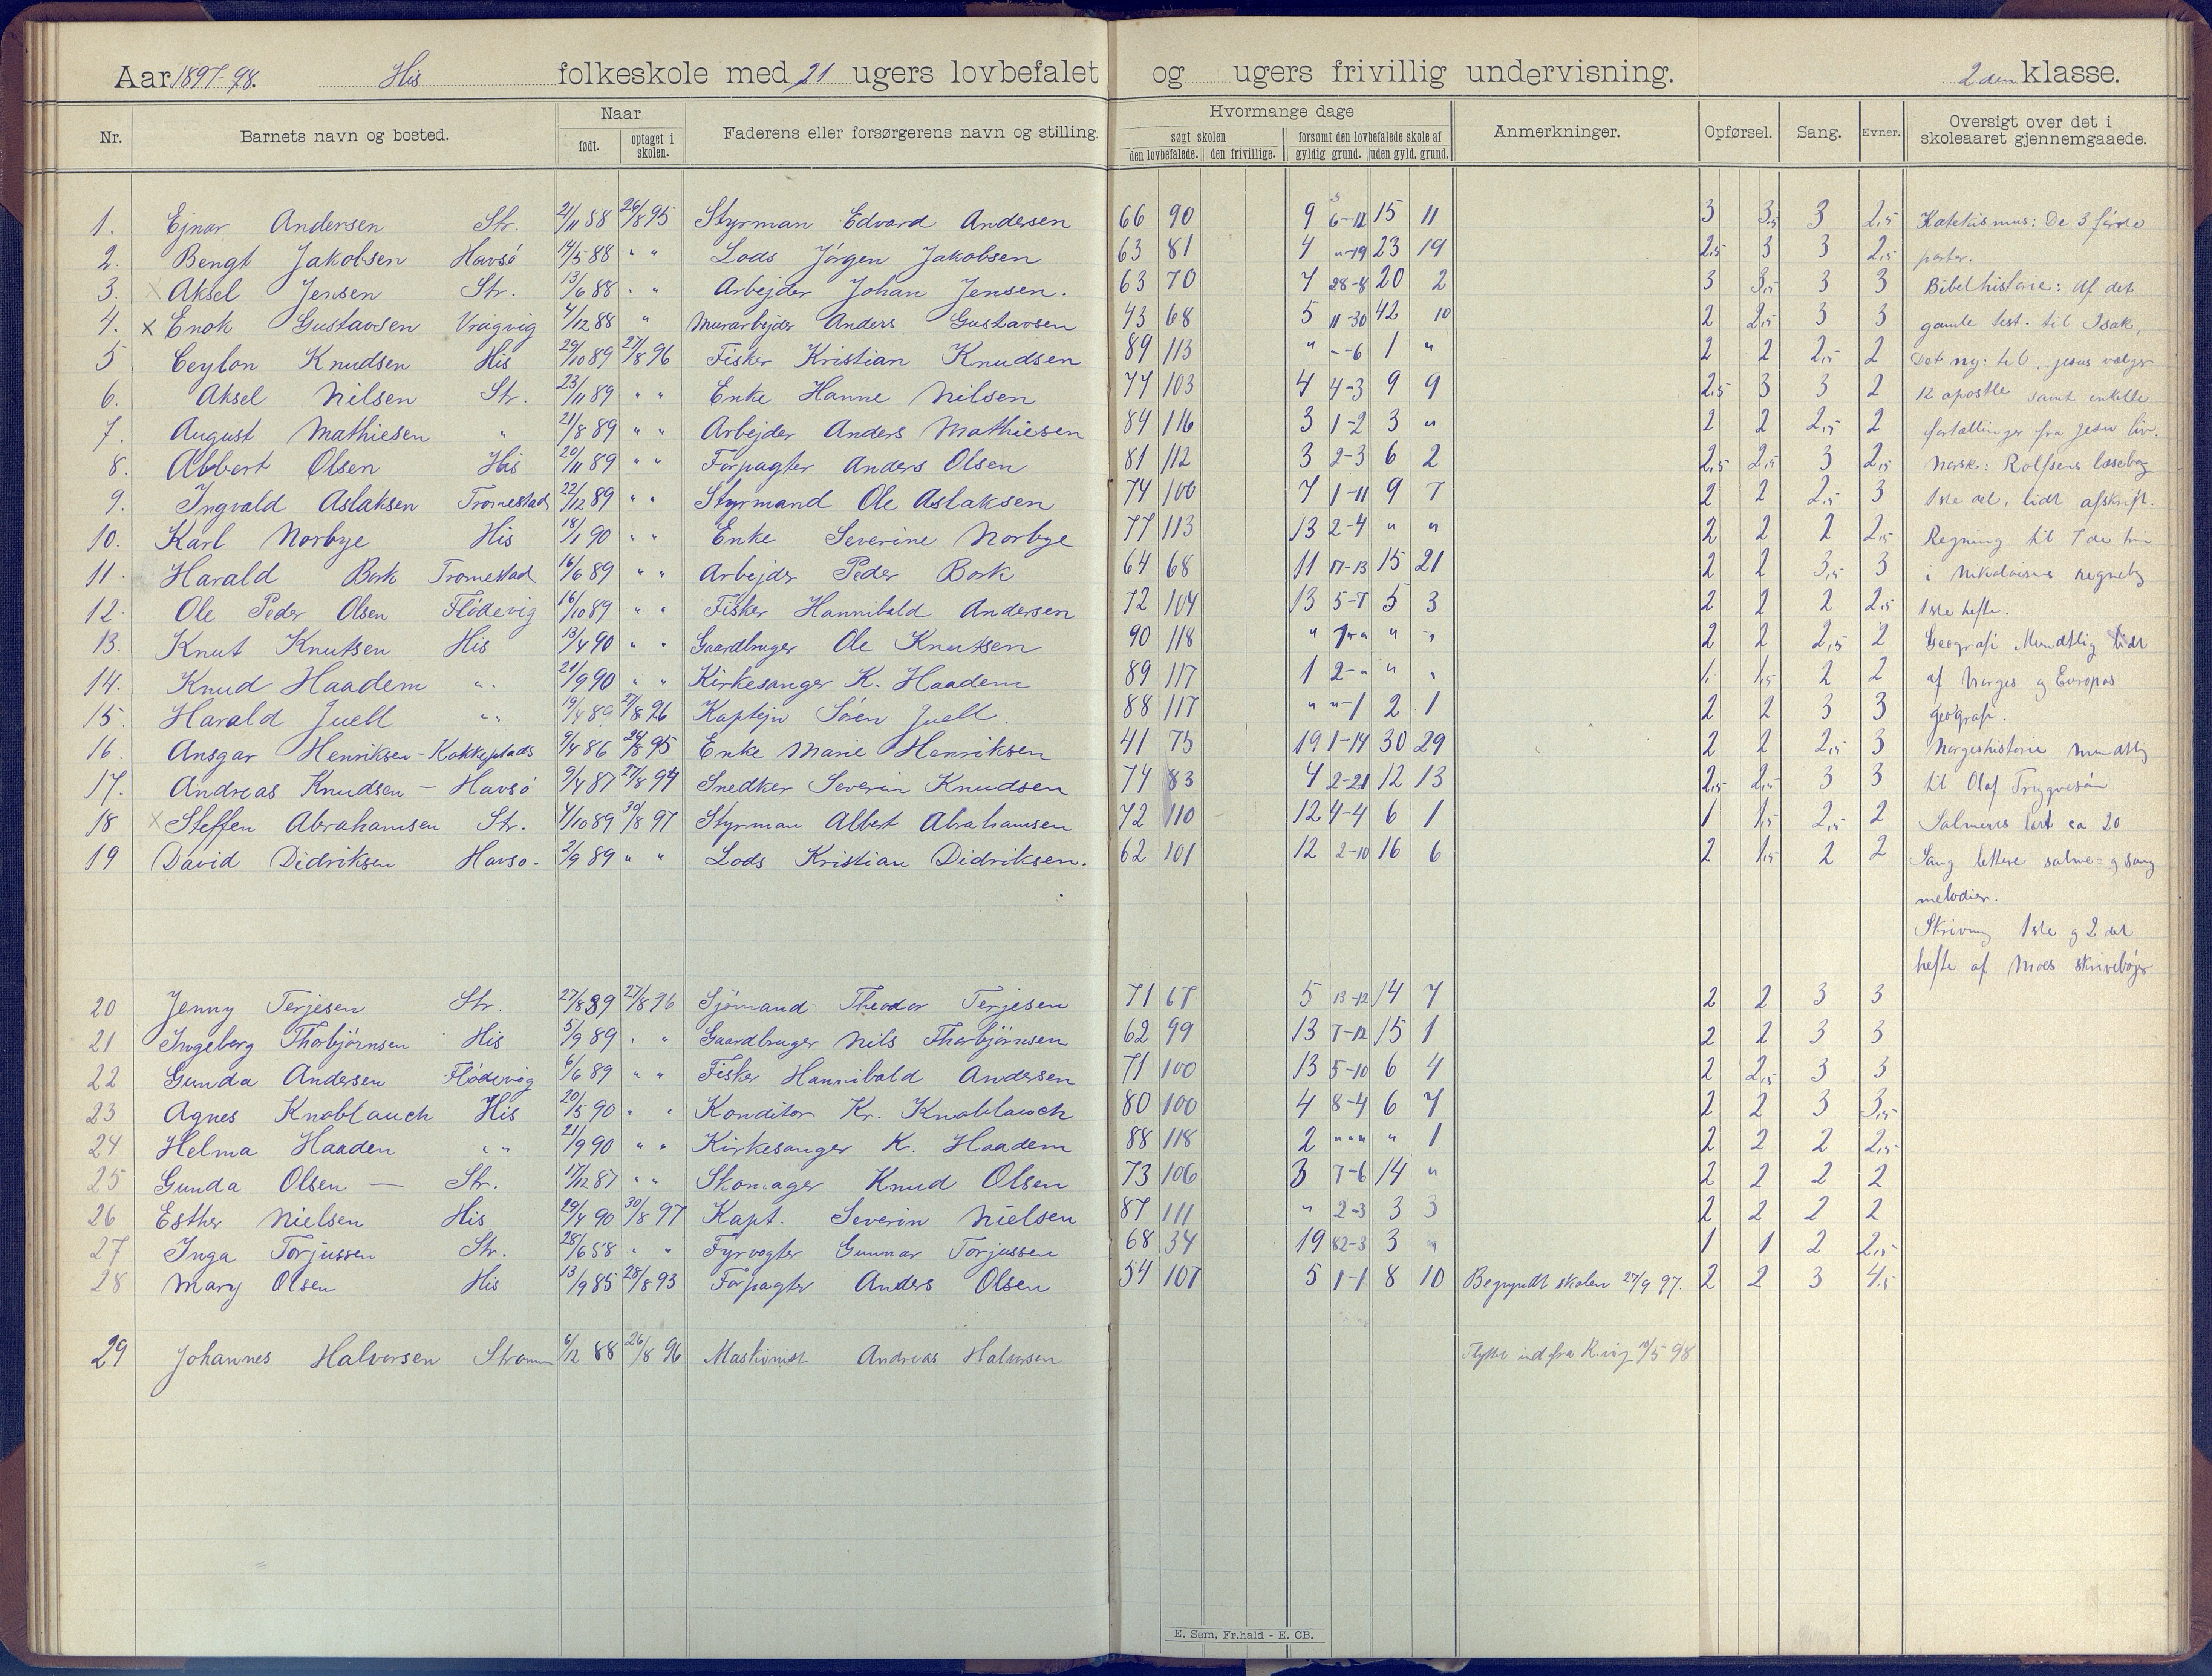 Aar 1897-98. His folkeskole med 21 ugers lovbefalet og ugers frivillig undervisning. 2den klasse.
Nr. Barnets navn og bosted. Naar født. optaget i skolen. Faderens eller forsørgerens navn og stilling. Hvormange dage søgt skolen den lovbefalede. den frivillige. forsømt den lovbefalede skole af gyldig grund. uden gyld. grund. Anmerkninger. Opførsel. Sang. Evner. Oversigt over det i skoleaaret gjennemgaaede.
1. Ejnar Andersen Str. 21/11 88 26/8 95 Styrman Edvard Andersen 66 90 9 6-12 15 11 3 3,5 3 2,5 Katekismus: De 3 første
2. Bengt Jakobsen Havsö 14/5 88 " " Lods Jörgen Jakobsen 63 81 4 "-19 23 19 2,5 3 3 2,5 parter.
3. x Aksel Jensen Str. 13/6 88 " " Arbejder Johan Jensen. 63 70 7 28-8 20 2 3 3,5 3 3 Bibelhistorie: Af det
4. x Enok Gustavsen Vragvig 4/12 88 " Murarbejder Anders Gustavsen 43 68 5 11-30 42 10 2 2,5 3 3 gamle test. til Isak,
5 Ceylon Knudsen His 29/10 89 27/8 96 Fisker Kristian Knudsen 89 113 " "-6 1 " 2 2 2,5 2 Det ny: til Jesus vælger
6. Aksel Nilsen Str. 23/11 89 " " Enke Hanne Nilsen 77 103 4 4-3 9 9 2,5 3 3 2 12 apostle samt enkelte
7. August Mathiesen " 21/8 89 " " Arbejder Anders Mathiesen 84 116 3 1-2 3 " 2 2 2,5 2 fortællinger fra Jesu liv.
8. Albert Olsen His 20/11 89 " " Forpagter Anders Olsen 81 112 3 2-3 6 2 2,5 2,5 3 2,5 Norsk: Rolfsens læsebog
9. Ingvald Aslaksen Tromestad 22/12 89 " " Styrmand Ole Aslaksen 74 100 7 1-11 9 7 2 2 2,5 3 1ste del, lidt afskrift.
10. Karl Norbye His 18/1 90 " " Enke Severine Norbye 77 113 13 2-4 " " 2 2 2 2,5 Regning til 7de trin
11. Harald Bork Tromestad 16/6 89 " " Arbejder Peder Bork 64 68 11 17-13 15 21 2 2 3,5 3 i Nikolaisens regnebog
12. Ole Peder Olsen Flödevig 16/10 89 " " Fisker Hannibald Andersen 72 104 13 5-7 5 3 2 2 2 2,5 1ste hefte.
13. Knut Knutsen His 13/4 90 " " Gaardbruger Ole Knutsen 90 118 " 1-" " " 2 2 2,5 2 Geografi Mundtlig lidt
14. Knud Haadem " 21/9 90 " " Kirkesanger K. Haadem 89 117 1 2-" " " 1, 1,5 2 2 af Norges og Europas
15. Harald Juell " " 19/4 89 27/8 96 Kaptejn Sören Juell. 88 117 " "-1 2 1 2 2 3 3 geografi.
16. Ansgar Henriksen - Kokkeplads 9/4 86 26/8 95 Enke Marie Henriksen 41 75 19 1-14 30 29 2 2 2,5 3 Norgeshistorie mundtlig
17. Andreas Knudsen - Havsö 9/4 87 27/8 94 Snedker Severin Knudsen 74 83 4 2-21 12 13 2,5 2,5 3 3 til Olaf Trygvesön
18 x Steffen Abrahamsen Str. 4/10 89 30/8 97 Styrman Albert Abrahamsen 72 110 12 4-4 6 1 1 1,5 2,5 2 Salmevers lært ca 20
19 David Didriksen Havsö. 2/9 89 " " Lods Kristian Didriksen. 62 101 12 2-10 16 6 2 1,5 2 2 Sang lettere salme- og sang
melodier.
Skrivning 1ste og 2det
hefte af Moes skrivebøger
20 Jenny Terjesen Str. 27/8 89 27/8 96 Sjömand Theodor Terjesen 71 67 5 13-12 14 7 2 2 3 3
21 Ingeborg Thorbjörnsen His 5/9 89 " " Gaardbruger Nils Thorbjörnsen 62 99 13 7-12 15 1 2 2 3 3
22 Gunda Andersen Flödevig 6/6 89 " " Fisker Hannibald Andersen 71 100 13 5-10 6 4 2 2,5 3 3
23 Agnes Knoblauch His 20/5 90 " " Konditor Kr. Knoblauch 80 100 4 8-4 6 7 2 2 3 3,5
24 Helma Haaden " " 21/9 90 " " Kirkesanger K. Haadem 88 118 2 "-" " 1 2 2 2 2,5
25 Gunda Olsen - Str. 17/12 87 " " Skomager Knud Olsen 73 106 3 7-6 14 " 2 2 2 2
26 Esther Nielsen His 29/4 90 30/8 97 Kapt. Severin Nielsen 87 111 " 2-3 3 3 2 2 2 2
27 Inga Torjussen Str. 28/6 88 " " Fyrvogter Gunnar Torjussen 68 34 19 82-3 3 " 1 1 2 2,5
28 Mary Olsen His 13/9 85 28/8 93 Forpagter Anders Olsen 54 107 5 1-1 8 10 Begyndt skolen 27/9 97. 2 2 3 4,5
29 Johannes Halvorsen Strömm 6/12 88 26/8 96 Maskinist Andreas Halvorsen Flyttet ind fra K.vig 10/5 98
E. Sem, Fr.hald - E. CB.